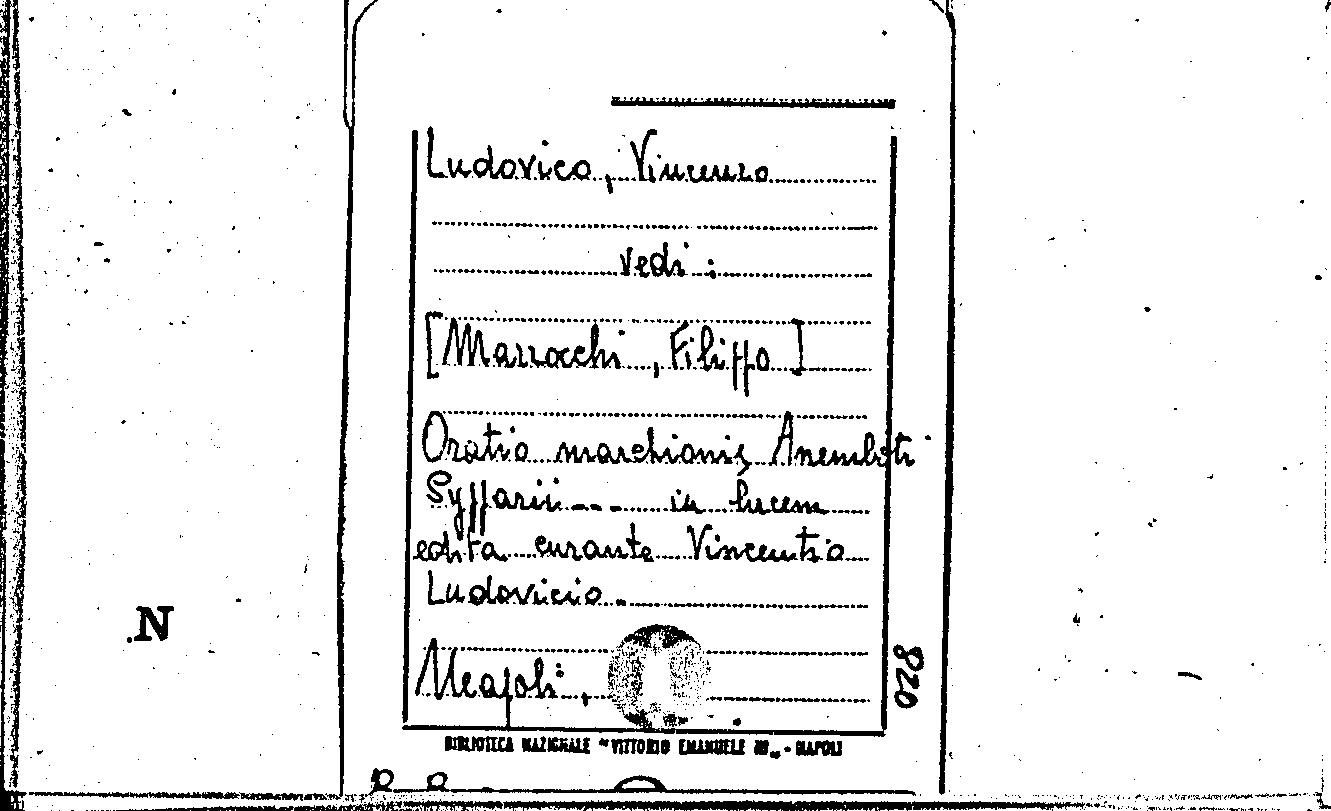 Ludovico, Vincenzo
vedi :
[Mazzocchi, Filippo]
Oratio marchionis Anemboti
Sypparii --- in lucem
edita curante Vincentio
Ludovicio.
Neapoli,
820
BIBLIOTECA NAZIONALE "VITTORIO EMANUELE III" - NAPOLI
N